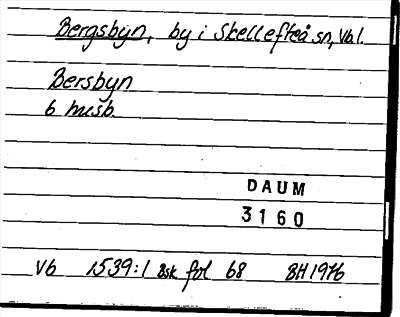 Bergsbyn, by i Skellefteå sn, Vb l.
Bersbyn
6 husb.
DAUM
3160
Vb 1539:1 Bsk fol 68 BH 1976